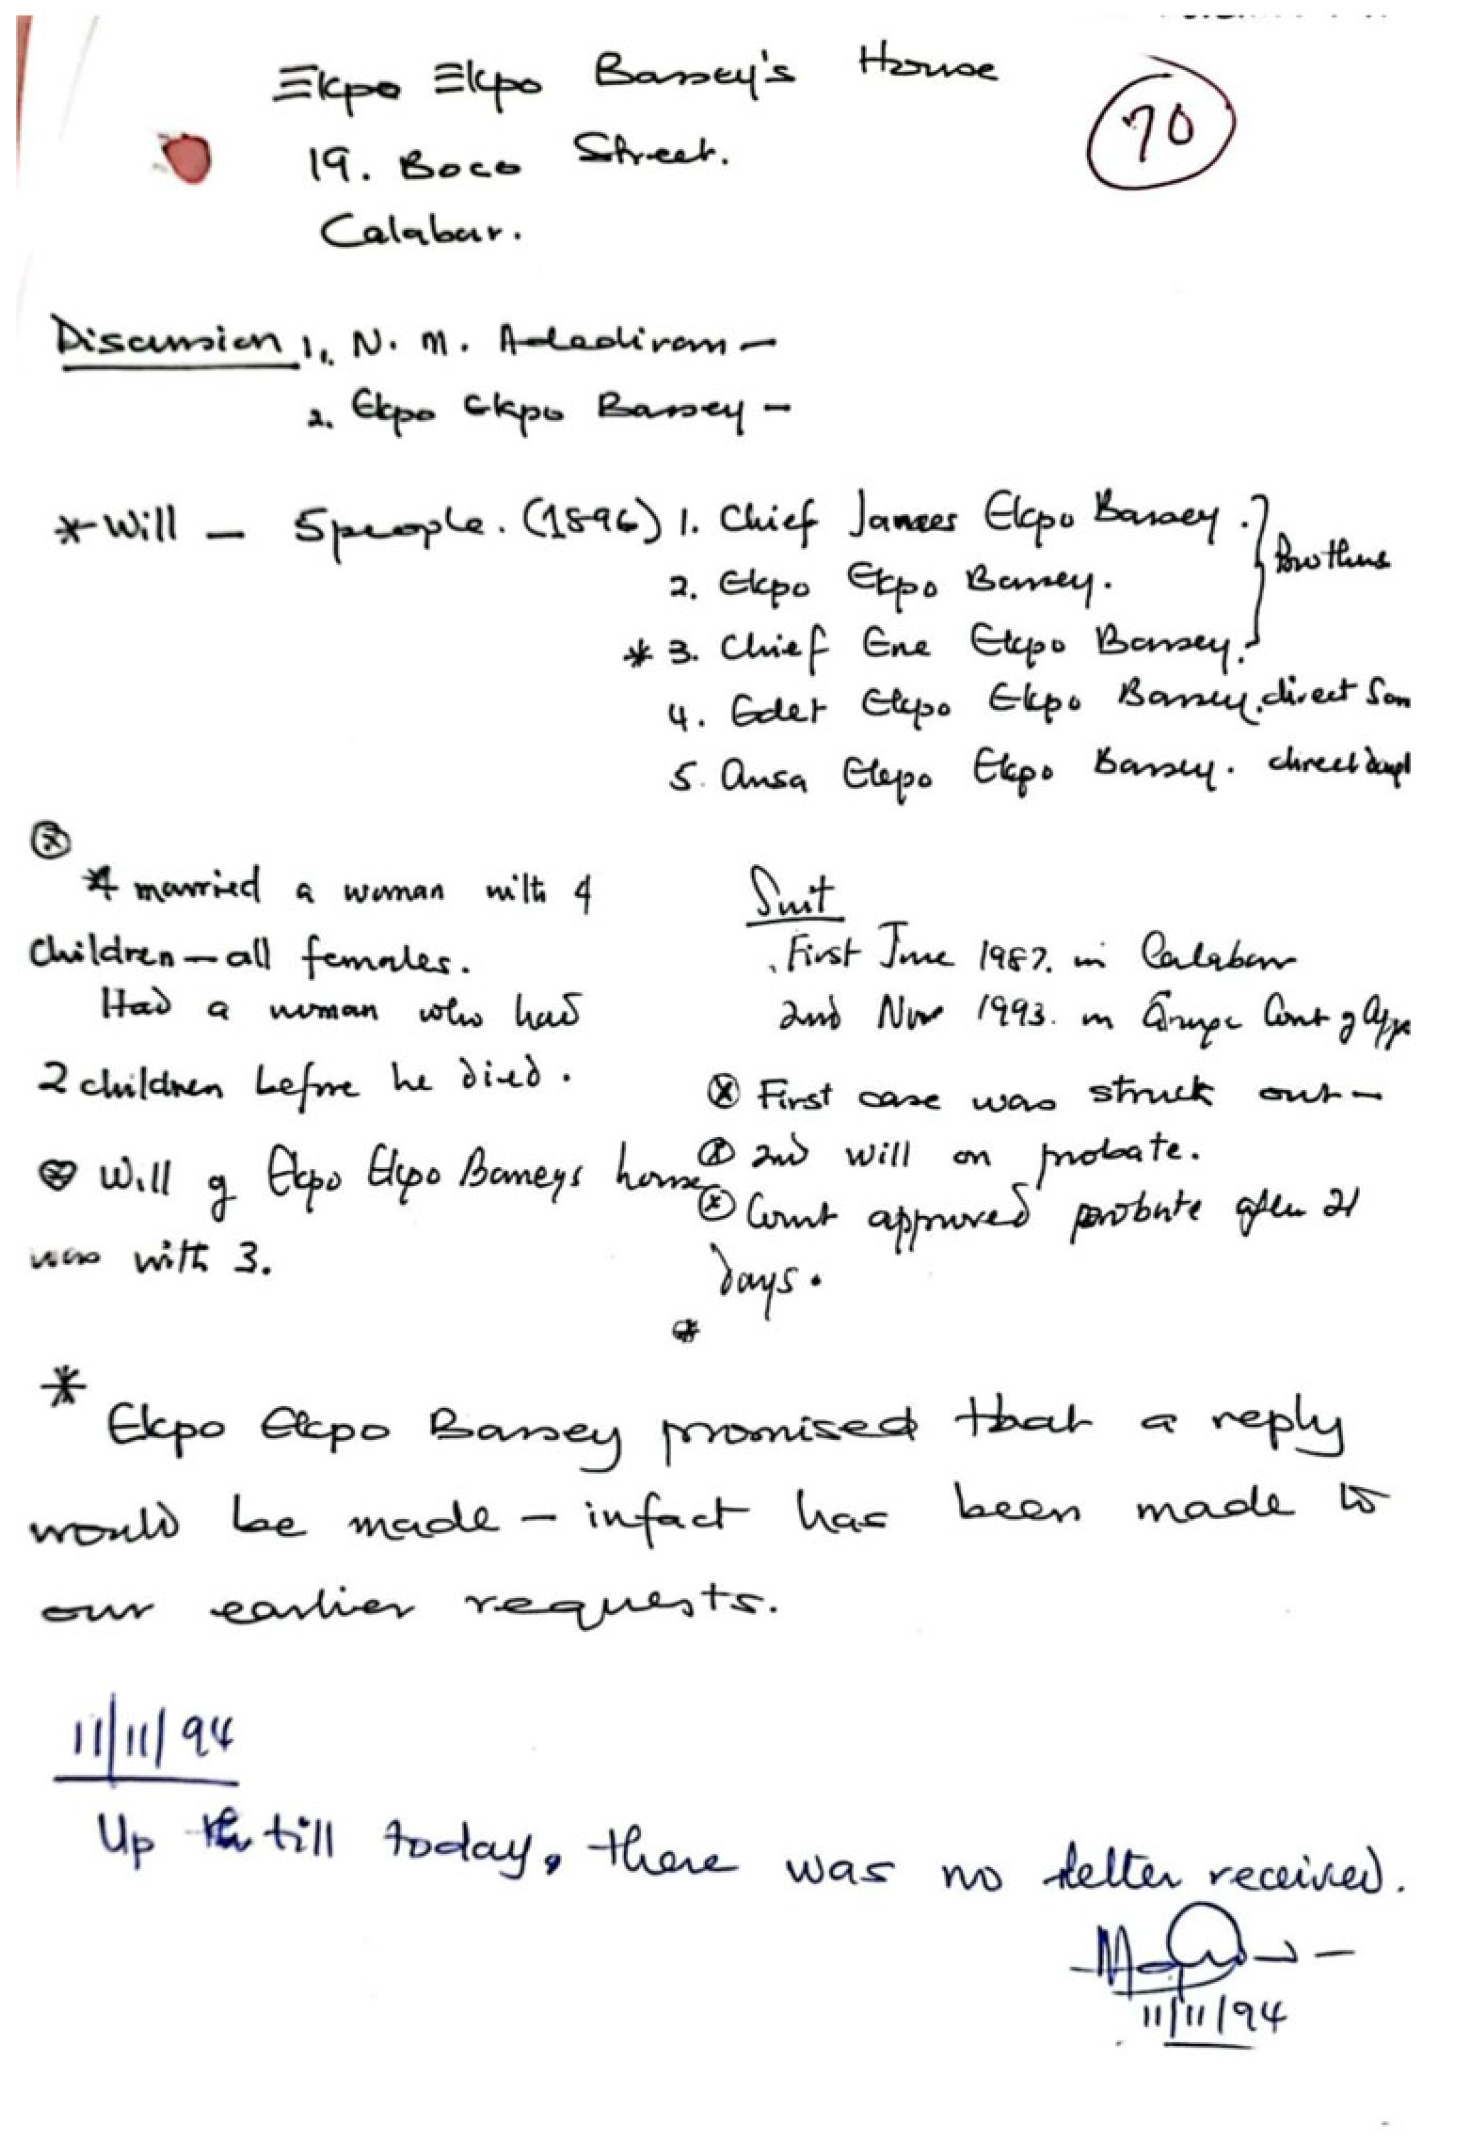 Ekpo Ekpo Bassey's House
70
19. Boco Street.
Calabar.
Discussion 1. N. M. Adediran -
2. Ekpo Ekpo Bassey -
* Will - 5 people. (1896) 1. Chief James Ekpo Bassey.
2. Ekpo Ekpo Bassey.
Brothers
* 3. Chief Ene Ekpo Bassey.
4. Edet Ekpo Ekpo Bassey. direct Son
5. Ansa Ekpo Ekpo Bassey. direct
*4 married a woman with 4
children - all females.
Had a woman who had
2 children before he died.
Will of Ekpo Ekpo Basseys house
was with 3.
Suit
First June 1987. in Calabar
2nd Nov 1993. in Court of App
First case was struck out -
2nd will on probate.
Court approved probate after 21
days.
* Ekpo Ekpo Bassey promised that a reply
would be made - infact has been made to
our earlier requests.
11/11/94
Up till today, there was no letter received.
11/11/94